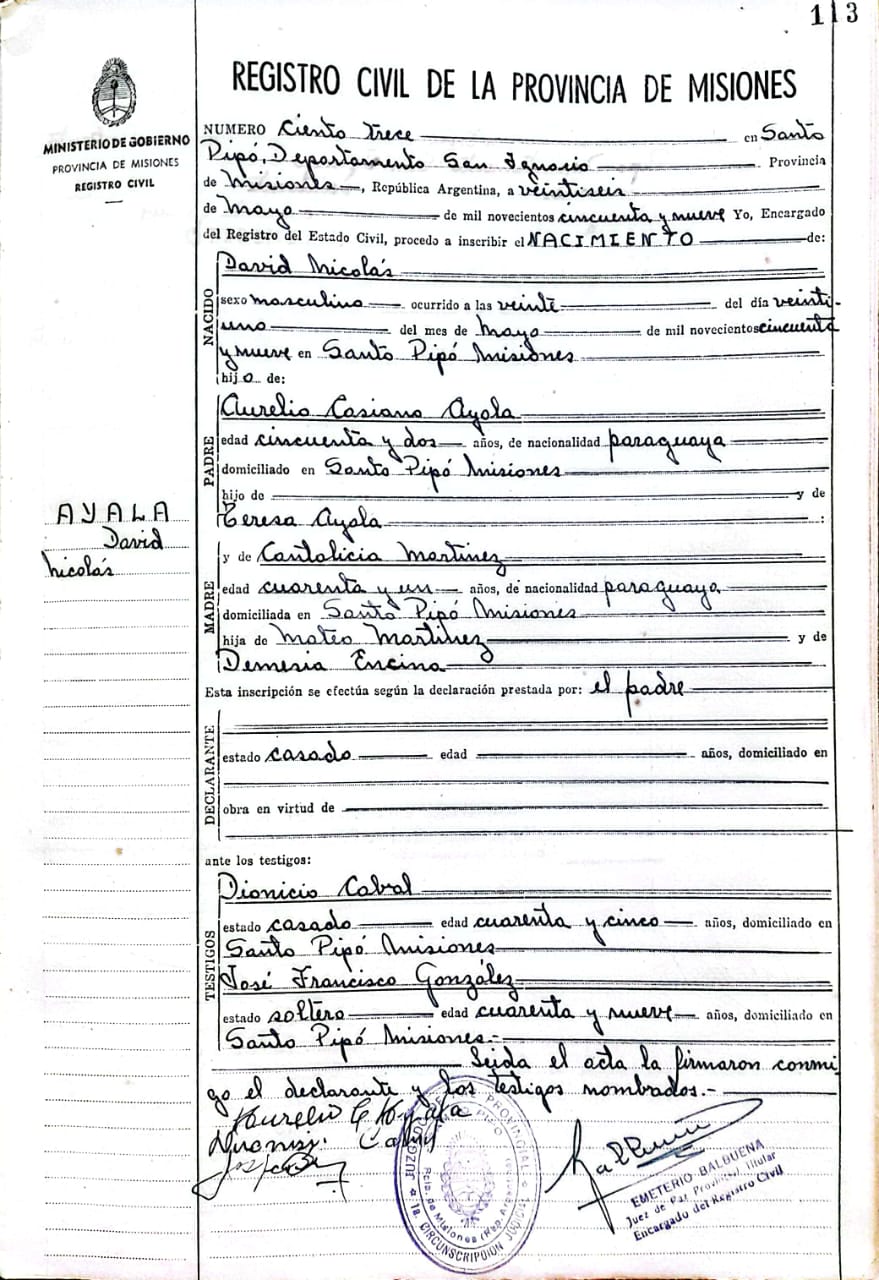 113
REGISTRO CIVIL DE LA PROVINCIA DE MISIONES
MINISTERIO DE GOBIERNO
PROVINCIA DE MISIONES
REGISTRO CIVIL
NUMERO Ciento trece en Santo
Pipó, Departamento San Ignacio Provincia
de Misiones, República Argentina, a veintiseis
de Mayo de mil novecientos cincuenta y nueve Yo, Encargado
del Registro del Estado Civil, procedo a inscribir el NACIMIENTO de:
NACIDO
David Nicolás
sexo masculino ocurrido a las veinte del día veinti-
uno del mes de Mayo de mil novecientos cincuenta
y nueve en Santo Pipó Misiones
hijo de:
PADRE
Aurelio Casiano Ayala
edad cincuenta y dos años, de nacionalidad paraguaya
domiciliado en Santo Pipó Misiones
hijo de y de
Teresa Ayala :
AYALA
David
Nicolás
MADRE
y de Cantalicia Martinez
edad cuarenta y un años, de nacionalidad paraguaya,
domiciliada en Santo Pipó Misiones
hija de Mateo Martinez y de
Demesia Encina
Esta inscripción se efectúa según la declaración prestada por: el padre
DECLARANTE
estado casado edad años, domiciliado en
obra en virtud de
ante los testigos:
TESTIGOS
Dionicio Cabral
estado casado edad cuarenta y cinco años, domiciliado en
Santo Pipó Misiones
José Francisco González
estado soltero edad cuarenta y nueve años, domiciliado en
Santo Pipó Misiones.-
Leida el acta la firmaron conmi
go el declarante y los testigos nombrados.-
Aurelio C Ayala
JUZGADO DE PAZ PROVINCIAL
Rcia. de Misiones (Rep. Argentina)
1a. CIRCUNSCRIPCION JUDICIAL
EMETERIO BALBUENA
Juez de Paz Provincial Titular
Encargado del Registro Civil